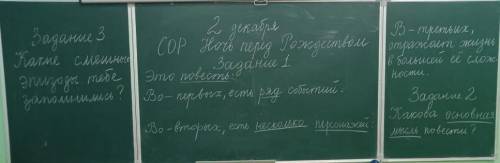 2 декабря
СОР Ночь перед Рождеством
Задание 1
Это повесть:
Во-первых, есть ряд событий:
Во-вторых, есть несколько персонажей:
В-третьих,
отражает жизнь
в большей её слож-
ности.
Задание 2
Какова основная
мысль повести?
Задание 3
Какие смешные
эпизоды тебе
запомнились?